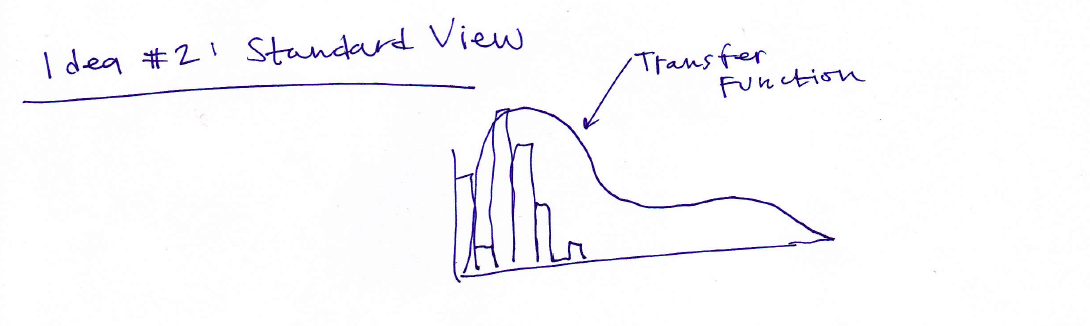 Idea #2: Standard View
Transfer
Function